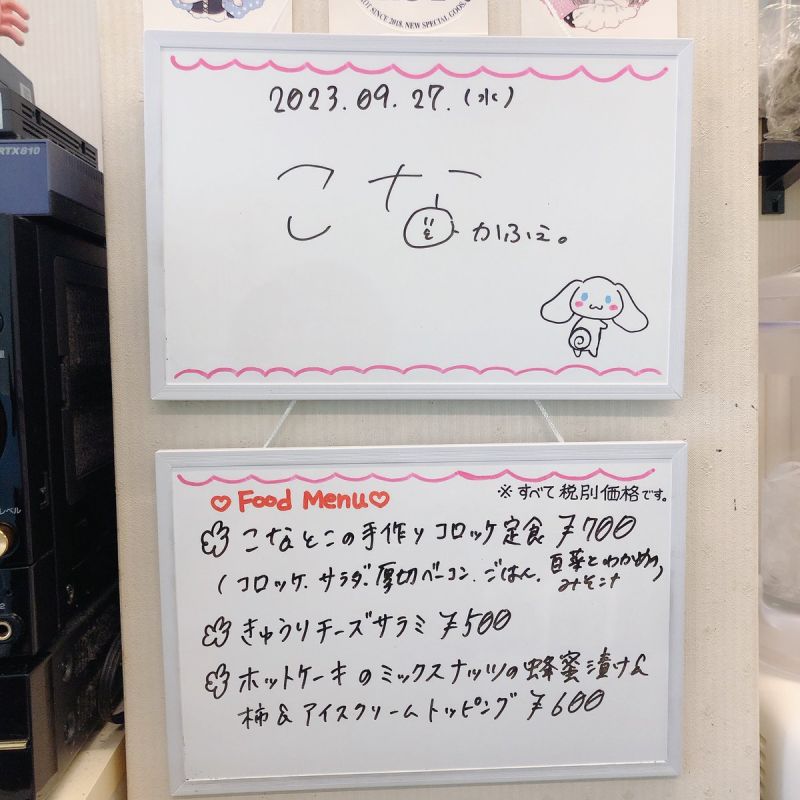 OT SINCE 2018. NEW SPECIAL GOODS.
RTX810
2023.09.27.(水)
こな かふぇ。
♡ Food Menu ♡
※すべて税別価格です。
こなとこの手作りコロッケ定食 ¥700
(コロッケ、サラダ、厚切ベーコン、ごはん、豆腐とわかめのみそ汁)
きゅうりチーズサラミ ¥500
ホットケーキのミックスナッツの蜂蜜漬け&
柿&アイスクリームトッピング ¥600
レベル
2